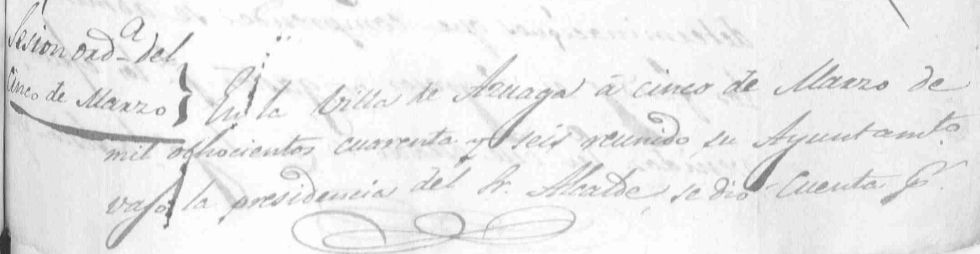 Sesion ord.a del
Cinco de Marzo
En la Villa de Azuaga á cinco de Marzo de
mil ochocientos cuarenta y seis reunido su Ayuntamto.
vajo la presidencia del Sr. Alcalde, se dio Cuenta pr.